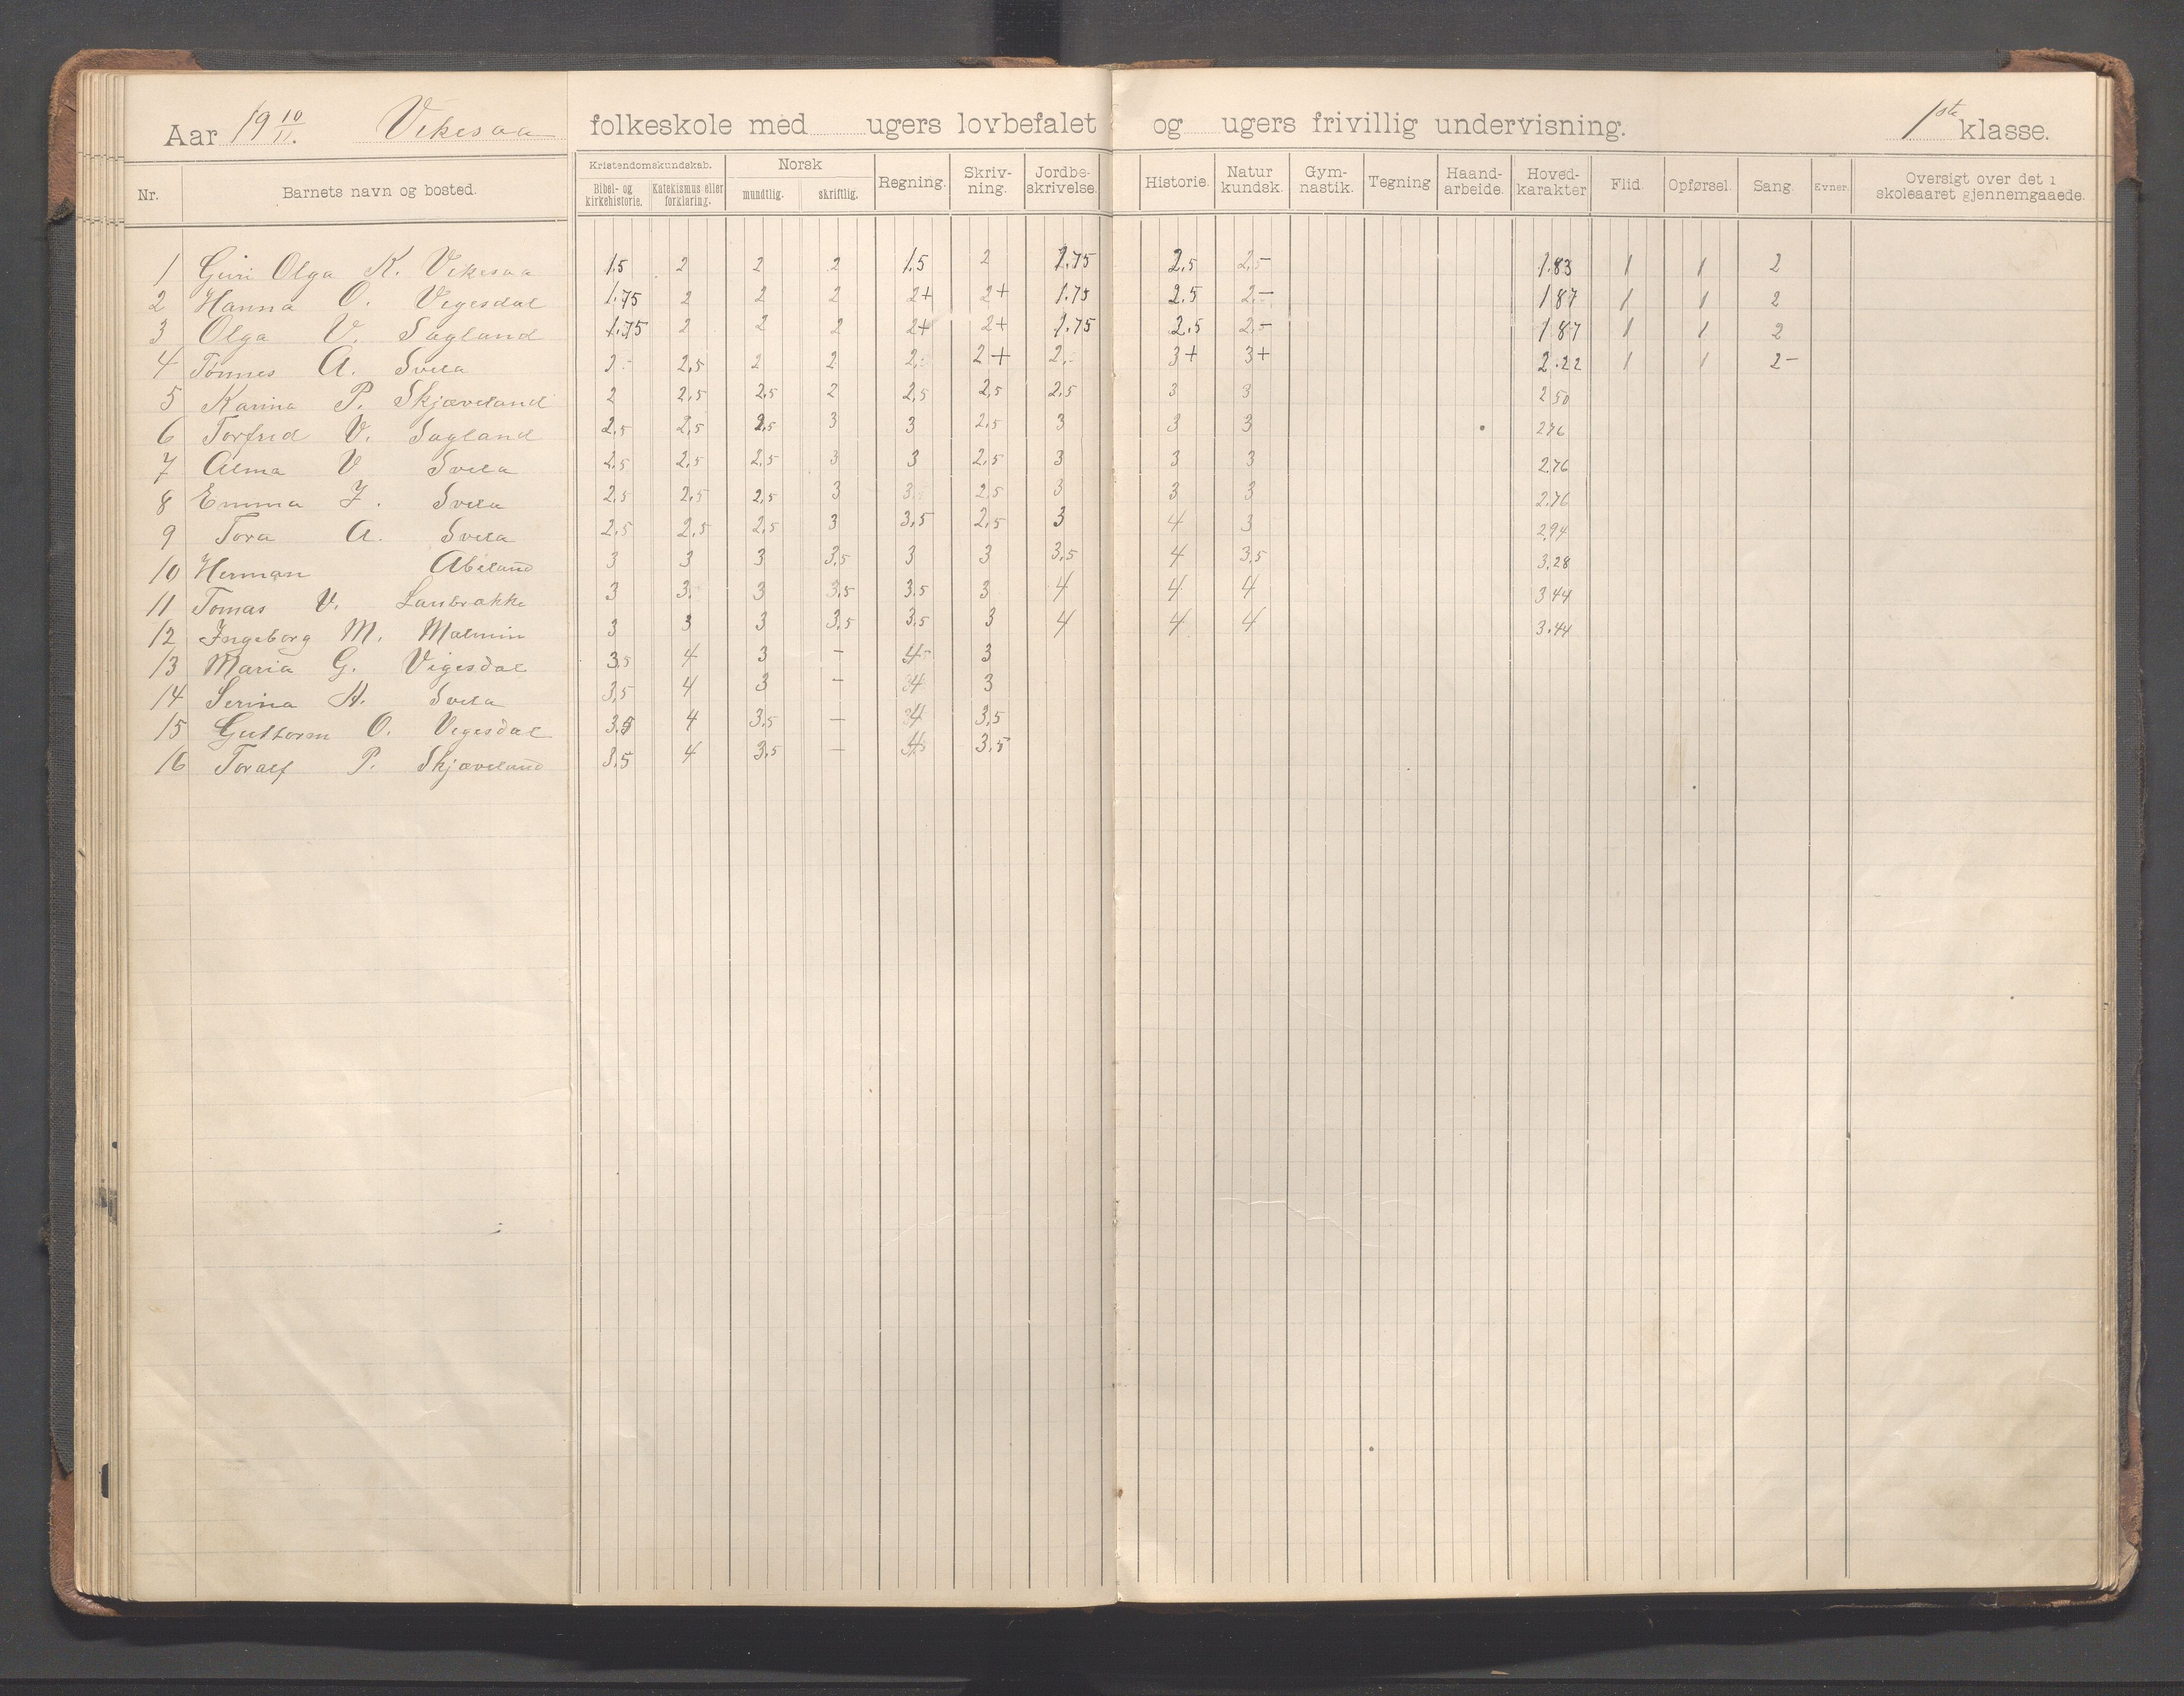 Aar 19 10/11. Vikesaa folkeskole med ugers lovbefalet og ugers frivillig undervisning. 1ste klasse.
Nr. Barnets navn og bosted. Kristendomskundskab. Bibel- og kirkehistorie. Katekismus eller forklaring. Norsk mundtlig. skriftlig. Regning. Skriv-ning. Jordbe-skrivelse. Historie. Natur kundsk. Gym-nastik. Tegning Haand-arbeide. Hoved-karakter Flid. Opførsel. Sang. Evner. Oversigt over det i skoleaaret gjennemgaaede.
1 Guri Olga K. Vikesaa 1.5 2 2 2 1.5 2 1.75 2.5 2.5- 1.83 1 1 2
2 Hanna O. Vegesdal 1.75 2 2 2 2+ 2+ 1.75 2.5 2- 1.87 1 1 2
3 Olga V. Sagland 1.75 2 2 2 2+ 2+ 1.75 2.5 2- 1.87 1 1 2
4 Tønnes A. Svela 2- 2,5 2 2 2- 2+ 2- 3+ 3+ 2.22 1 1 2-
5 Karina P. Skjæveland 2 2,5 2,5 2 2,5 2,5 2,5 3 3 2 50
6 Torfred V. Sagland 2,5 2,5 2,5 3 3 2,5 3 3 3 2.76
7 Alma V Svela 2,5 2,5 2,5 3 3 2,5 3 3 3 2.76
8 Emma J. Svela 2,5 2,5 2,5 3 3 2,5 3 3 3 2.76
9 Tora A. Svela 2,5 2,5 2,5 3 3,5 2,5 3 4 3 2.94
10 Herman Abeland 3 3 3 3,5 3 3 3,5 4 3,5 3.28
11 Tomas V. Lanbrakke 3 3 3 3,5 3.5 3 4 4 4 3 44
12 Ingeborg M. Malmin 3 3 3 3,5 3,5 3 4 4 4 3.44
13 Maria G. Vigesdal 3,5 4 3 - 4 3
14 Serina H. Svela 3,5 4 3 - 4 3
15 Guttorm O. Vegesdal 3.5 4 3,5 - 4 3,5
16 Toralf P. Skjæveland 3,5 4 3,5 - 4 3,5